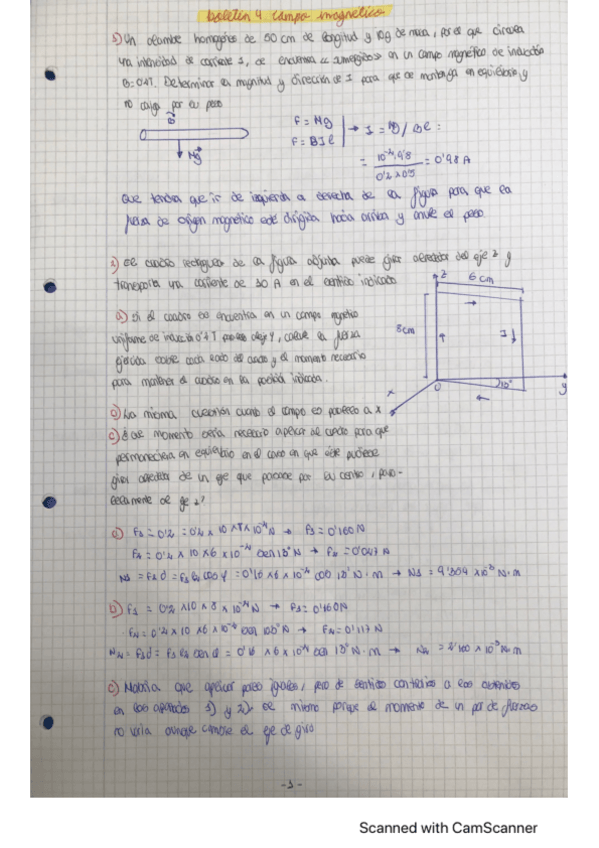 boletín 4. Campo magnético
1) Un alambre homogéneo de 50 cm de longitud y 10g de masa, por el que circula
una intensidad de corriente I, se encuentra "sumergido" en un campo magnético de inducción
B=0'2T. Determinar la magnitud y dirección de I para que se mantenga en equilibrio y
no caiga por su peso
B
Mg
F = Mg
F = BIl
→ I = Mg / Bl =
= 10⁻²·9'8 / 0'2 x 0'5 = 0'98 A
Que tendrá que ir de izquierda a derecha de la figura para que la
fuerza de origen magnético esté dirigida hacia arriba y anule el peso.
2) El cuadro rectangular de la figura adjunta puede girar alrededor del eje z y
transporta una corriente de 10 A en el sentido indicado
z
6 cm
8cm
I
x
O
18°
y
a) Si el cuadro se encuentra en un campo magnético
uniforme de inducción 0'2 T paralelo al eje Y, calcule la fuerza
ejercida sobre cada lado del cuadro y el momento necesario
para mantener el cuadro en la posición indicada.
b) La misma cuestión cuando el campo es paralelo a x
c) ¿Qué momento sería necesario aplicar al cuadro para que
permaneciera en equilibrio en el caso en que este pudiese
girar alrededor de un eje que pasase por su centro, para-
lelamente al eje z?
= 0'160 N
= 0'16 x 6 x 10⁻² cos 18° N·m →
b)
→ F₁ = 0'160N
= 0'117 N
c) Habría que aplicar pares iguales, pero de sentido contrario a los obtenidos
en los apartados 1) y 2). el mismo porque el momento de un par de fuerzas
no varía aunque cambie el eje de giro
-1-
Scanned with CamScanner